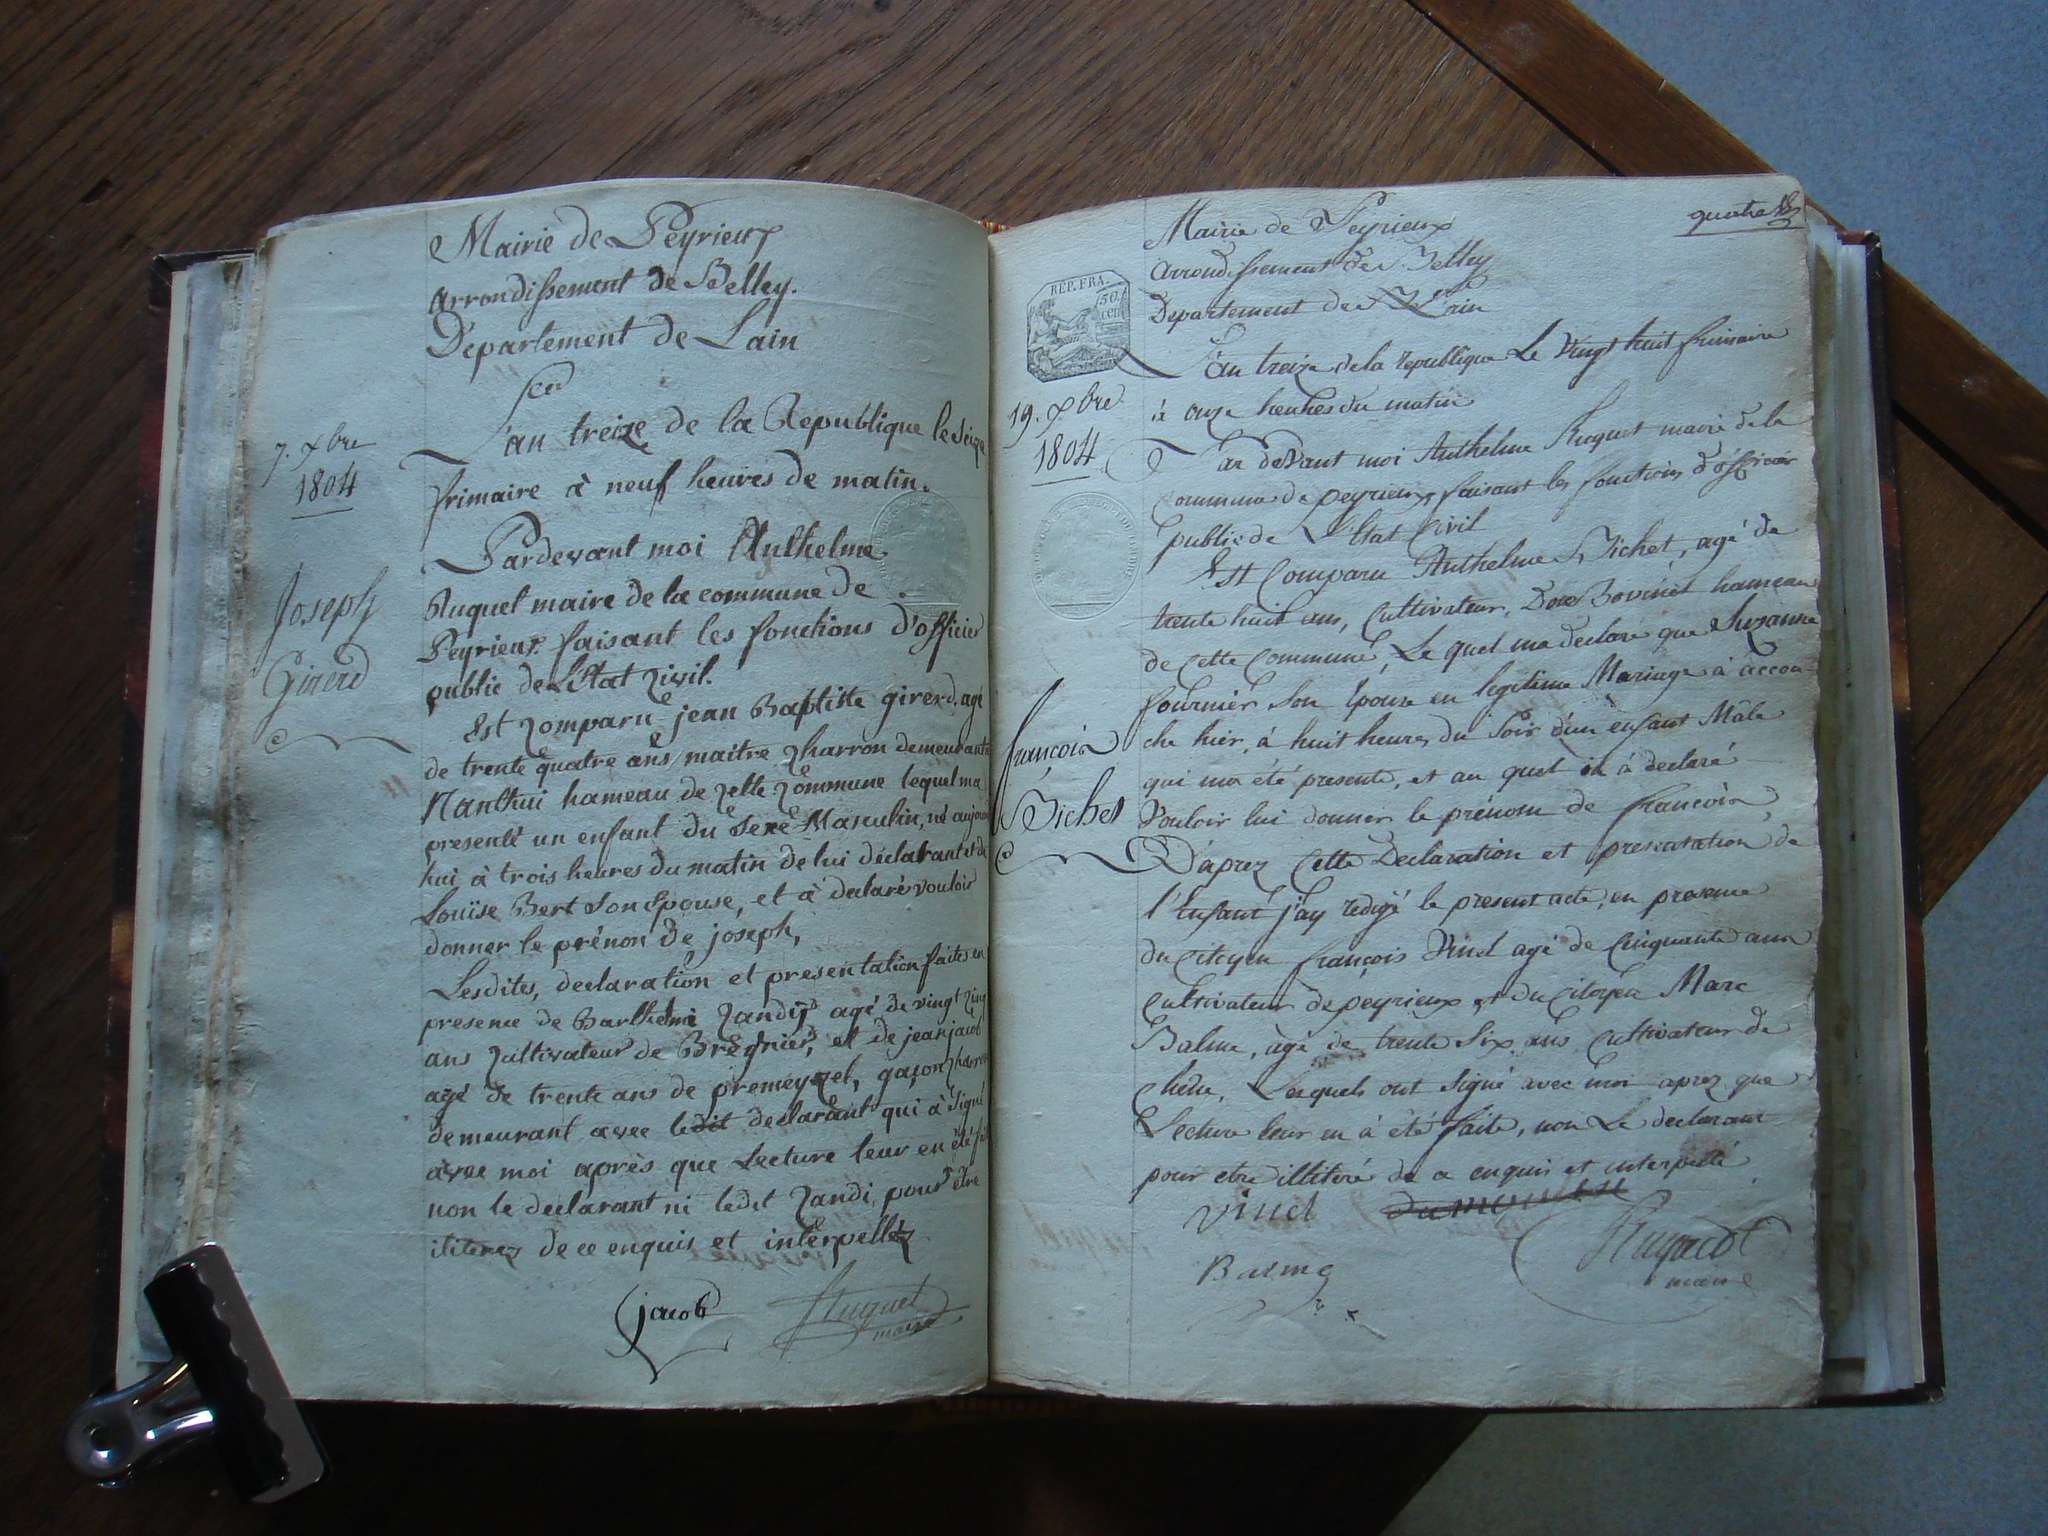 Mairie de Peyrieux
arrondissement de Belley.
Département de Lain
7. xbre
1804
L'an treize de la Republique le Seize
frimaire à neuf heures de matin.
Pardevant moi Anthelme
Huguet maire de la commune de
Peyrieux faisant les fonctions d'officier
public de L'Etat Civil.
Joseph
Girerd
Est Comparu jean Baptiste girerd, agé
de trente quatre ans, maitre Charron demeurant à
Nanthui hameau de Cette Commune lequel ma
presenté un enfant du Sexe Masculin, né aujourd
hui à trois heures du matin de lui déclarant et de
Louïse Bert Son Epouse, et à declaré vouloir
donner le prénon De joseph,
Lesdites, declaration et presentation faites en
presence de Barthelmi Candij agé de vingt Cinq
ans Cultivateur de Bregnier, et de jean jacob
agé de trente ans de premeyzel, gaçon Charron
demeurant avec ledit declarant qui à Signé
avec moi après que Lecture leur en été fait
non le declarant ni ledit Candi, pour être
iliterez de ce enquis et interpellez
jacob Huguet
maire
quatre
Mairie de Peyrieux
arrondissement de Belley
Departement de L'ain
REP. FRA.
50
cen
19. xbre
1804
L'an treize de la republique Le Vingt huit frimaire
à onze heures du matin
Par devant moi Anthelme Huguet maire de la
Commune de peyrieux faisant les fonctions d'officier
public de L'Etat Civil
Est Comparu Anthelme Bichet, agé de
trente huit ans, Cultivateur, De Bovinel hameau
de Cette Commune, Le quel ma declaré que Suzanne
fournier Son Epouse en legitime Mariage à accou-
ché hier, à huit heures du Soir d'un enfant Mâle
qui ma été presenté, et au quel il à declaré
Vouloir lui donner le prénom de francois,
françois
Bichet
D'aprez Cette Declaration et presentation de
l'Enfant j'ay redigé le present acte, en presence
du Citoyen françois Vinel agé de Cinquante ans
Cultivateur de peyrieux et du Citoyen Marc
Balme, agé de trente Six ans Cultivateur de
Lesquels ont Signé avec moi aprez que
Lecture leur en à été faite, non Le declarant
pour etre illiteré de ce enquis et interpellé
Vinel
Balme
Huguet
maire